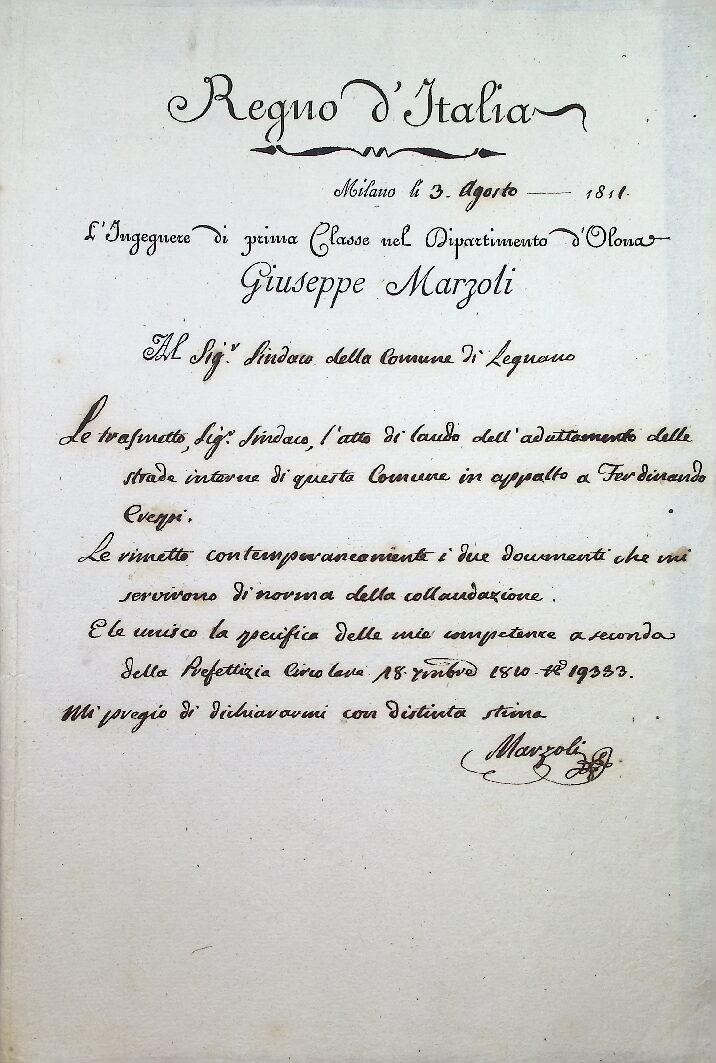 Regno d'Italia
Milano li 3. Agosto 1811.
L'Ingegnere di prima Classe nel Dipartimento d'Olona
Giuseppe Marzoli
Al Sig.r Sindaco della Comune di Legnano
Le trasmetto, Sig.r Sindaco, l'atto di laudo dell'adattamento delle
strade interne di questa Comune in appalto a Ferdinando
Crespi.
Le rimetto contemporaneamente i due documenti che mi
servirono di norma della collaudazione.
E le unisco la specifica delle mie competenze a seconda
della Prefettizia Circolare 18. 7mbre 1810 N.o 19333.
Mi pregio di dichiararmi con distinta stima
Marzoli